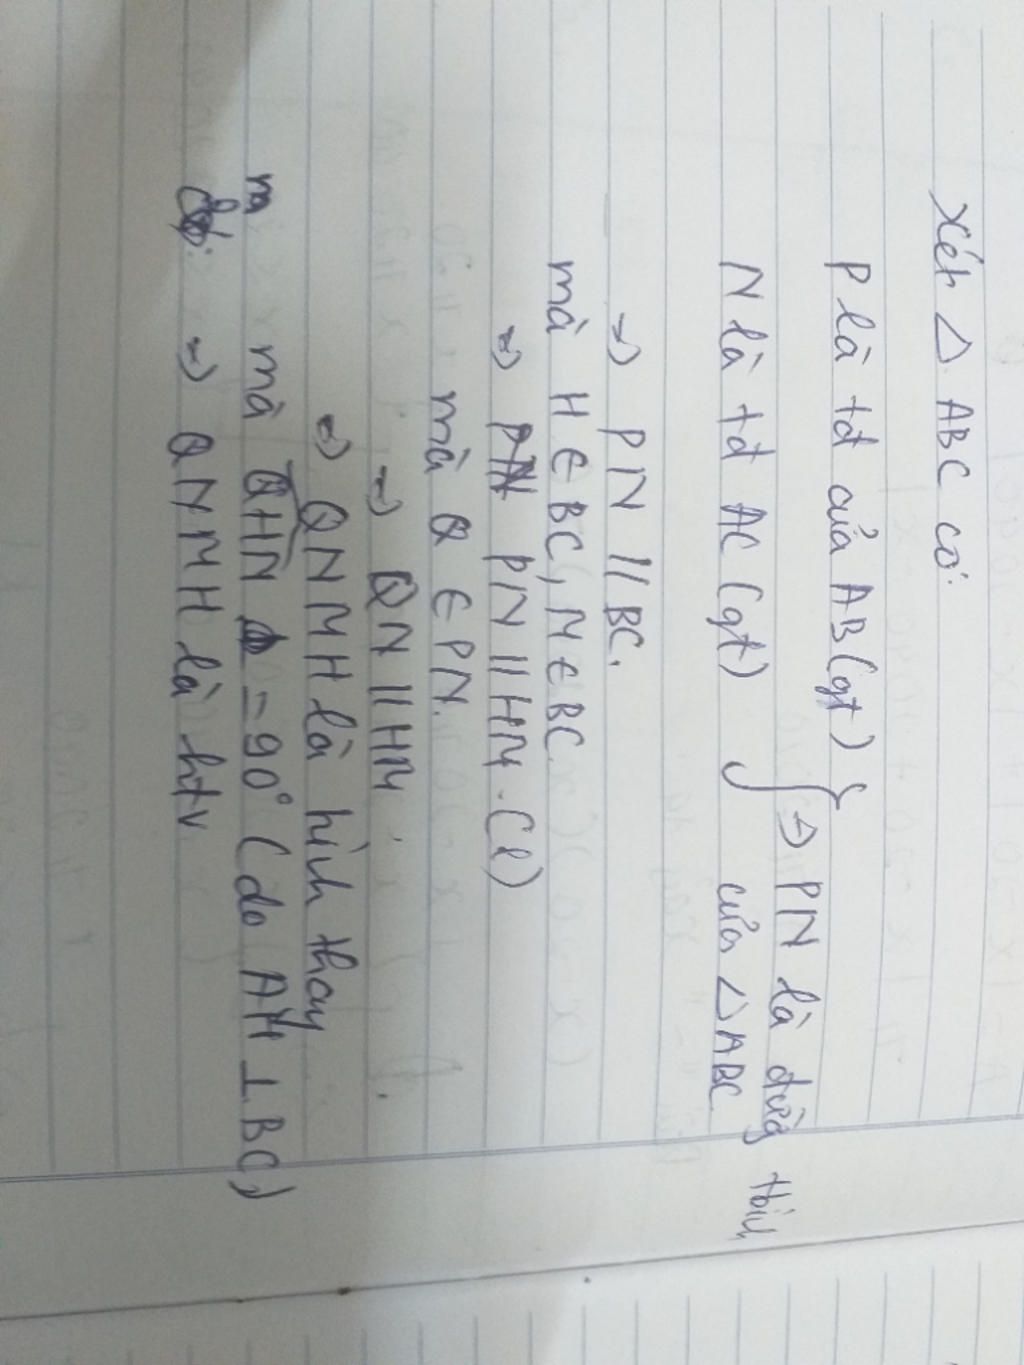 Xét △ ABC có:
P là tđ của AB (gt)
N là tđ AC (gt)
⇒ PN là đường tbình
của △ABC
⇒ PN // BC.
mà H ∈ BC, M ∈ BC
⇒ PN // HM (1)
mà Q ∈ PN.
⇒ QN // HM
⇒ QNMH là hình thang
mà = 90° (do AH ⊥ BC)
⇒ QNMH là htv